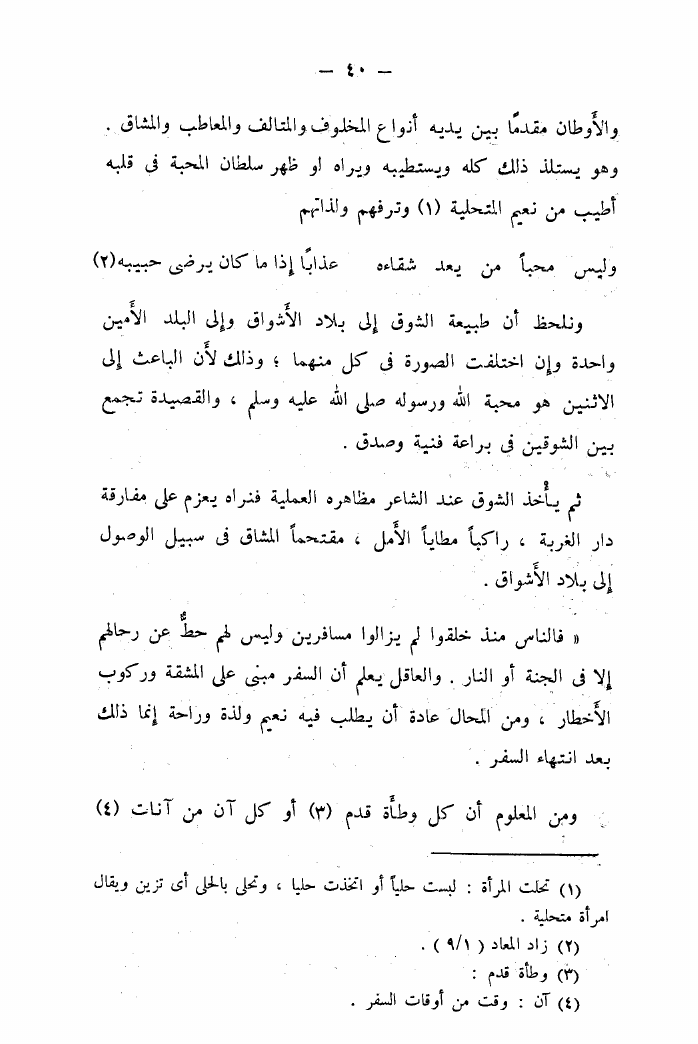 — ٤٠ —
والأَوطان مقدمًا بين يديه أنواع المخاوف والمتالف والمعاطب والمشاق .
وهو يستلذ ذلك كله ويستطيبه ويراه لو ظهر سلطان المحبة فى قلبه
أطيب من نعيم المتحلية (١) وترفهم ولذاتهم
وليس محباً من يعد شقاءه عذابًا إذا ما كان يرضى حبيبه(٢)
ونلحظ أن طبيعة الشوق إلى بلاد الأَشواق وإلى البلد الأَمين
واحدة وإن اختلفت الصورة فى كل منهما ؛ وذلك لأَن الباعث إلى
الاثنين هو محبة الله ورسوله صلى الله عليه وسلم ، والقصيدة تجمع
بين الشوقين فى براعة فنية وصدق .
ثم يأْخذ الشوق عند الشاعر مظاهره العملية فنراه يعزم على مفارقة
دار الغربة ، راكباً مطاياً الأَمل ، مقتحماً المشاق فى سبيل الوصول
إلى بلاد الأَشواق .
« فالناس منذ خلقوا لم يزالوا مسافرين وليس لهم حطٌّ عن رحالهم
إلا فى الجنة أو النار . والعاقل يعلم أن السفر مبنى على المشقة وركوب
الأَخطار ، ومن المحال عادة أن يطلب فيه نعيم ولذة وراحة إنما ذلك
بعد انتهاء السفر .
ومن المعلوم أن كل وطأَة قدم (٣) أو كل آن من آنات (٤)
(١) تحلت المرأة : لبست حلياً أو اتخذت حليا ، وتحلى بالحلى أى تزين ويقال
امرأة متحلية .
(٢) زاد المعاد ( ٩/١ ) .
(٣) وطأة قدم :
(٤) آن : وقت من أوقات السفر .